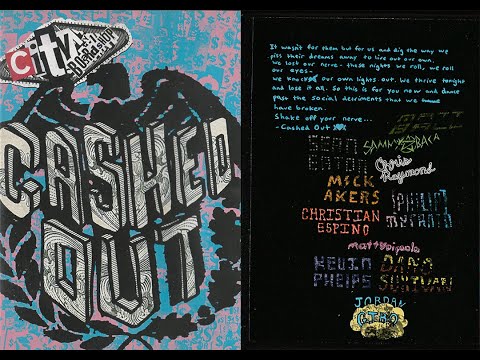 City
CASHED
OUT
It wasn't for them but for us and dig the way we
piss their dreams away to live out our own.
We lost our nerve- those nights we roll, we roll
our eyes-
we knock our own lights out. We thrive tonight
and lose it all. So this is for you now and dance
past the social decriments that we
have broken.
Shake off your nerve...
-Cashed Out
SEAN
EATON
SAMMY BACA
Chris
Raymond
MICK
AKERS
CHRISTIAN
ESPINO
KEVIN
PHELPS
DANO
SULIVAN
JORDAN